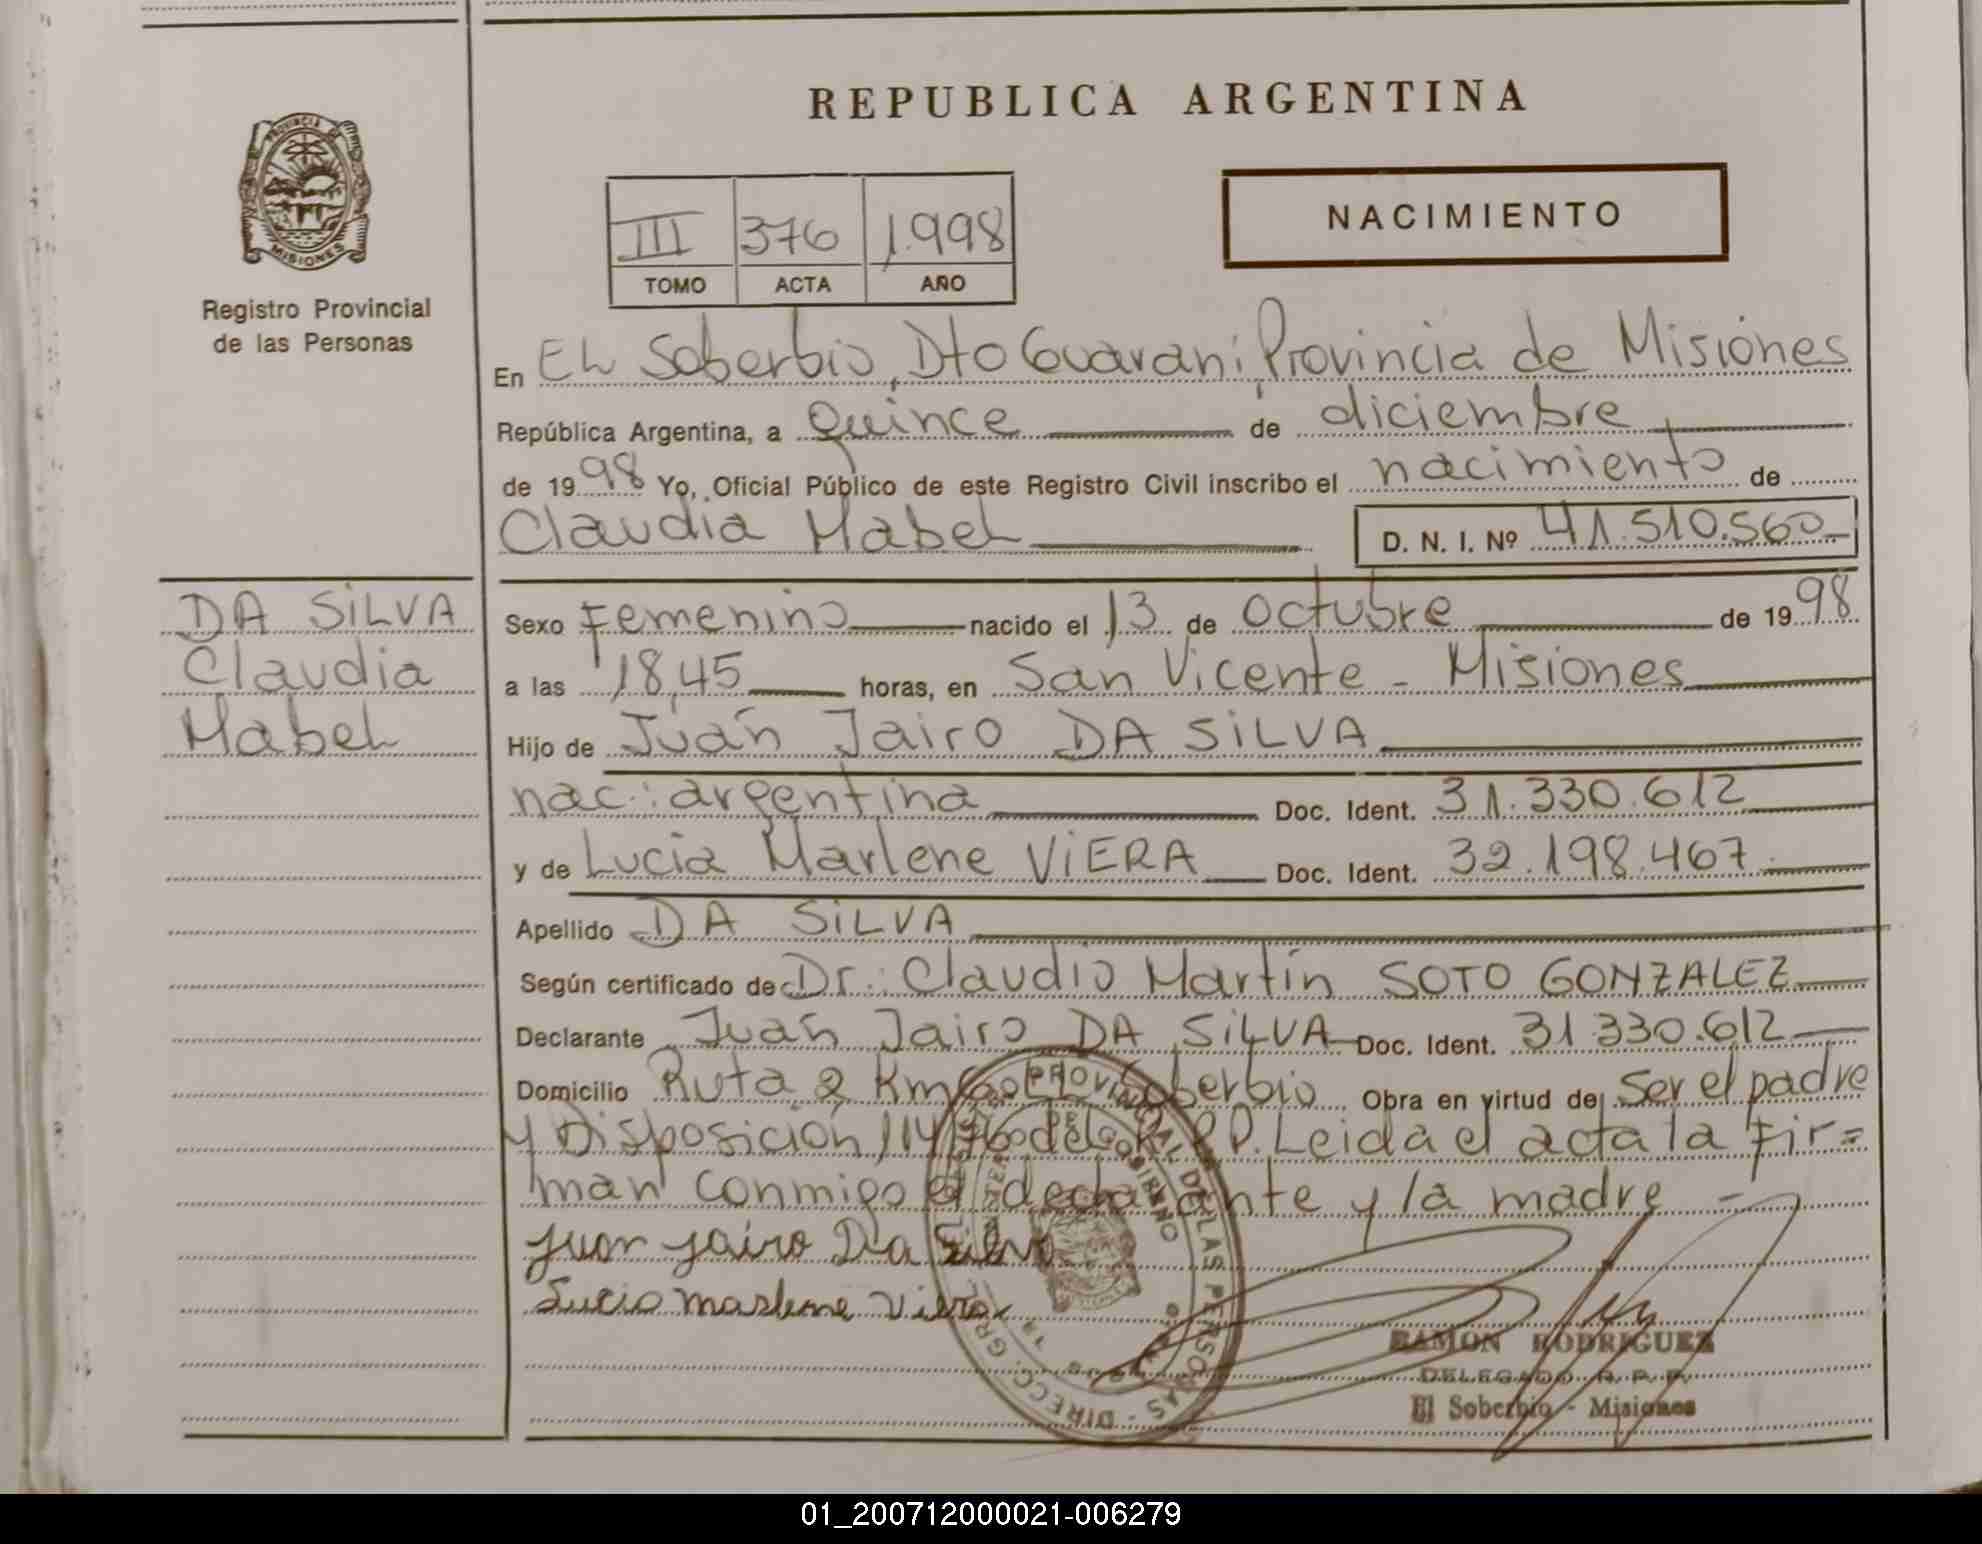 REPUBLICA ARGENTINA
PROVINCIA DE
MISIONES
Registro Provincial
de las Personas
III 376 1.998
TOMO ACTA AÑO
NACIMIENTO
En EL Soberbio, Dto Guaraní Provincia de Misiones
República Argentina, a quince de diciembre
de 1998 Yo, Oficial Público de este Registro Civil inscribo el nacimiento de
Claudia Mabel D. N. I. Nº 41.510.560
DA SILVA
Claudia
Mabel
Sexo Femenino nacido el 13 de Octubre de 1998
a las 18,45 horas, en San Vicente - Misiones
Hijo de Juan Jairo DA SILVA
nac: argentina Doc. Ident. 31.330.612
y de Lucia Marlene VIERA Doc. Ident. 32.198.467
Apellido DA SILVA
Según certificado de Dr: Claudio Martín SOTO GONZALEZ
Declarante Juan Jairo DA SILVA Doc. Ident. 31.330.612
Domicilio Ruta 2 Km Soberbio Obra en virtud de Ser el padre
y Disposición 114/76 del R.P.P. Leida el acta la fir=
man conmigo el declarante y la madre -
Juan Jairo Da Silva
Lucia Marlene Viera
DIRECC. GRAL. PROVINCIAL DE LAS PERSONAS
RAMON RODRIGUEZ
DELEGADO R. P. P.
El Soberbio - Misiones
01_200712000021-006279